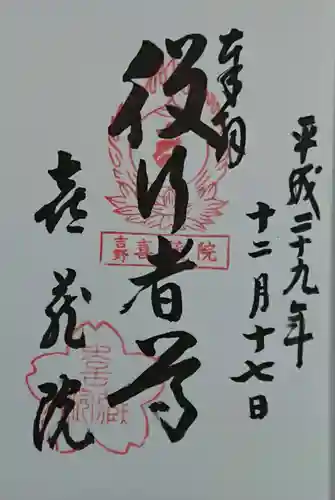 奉拝
平成二十九年
十二月十七日
役行者尊
吉野 喜蔵院
喜蔵院
喜蔵院